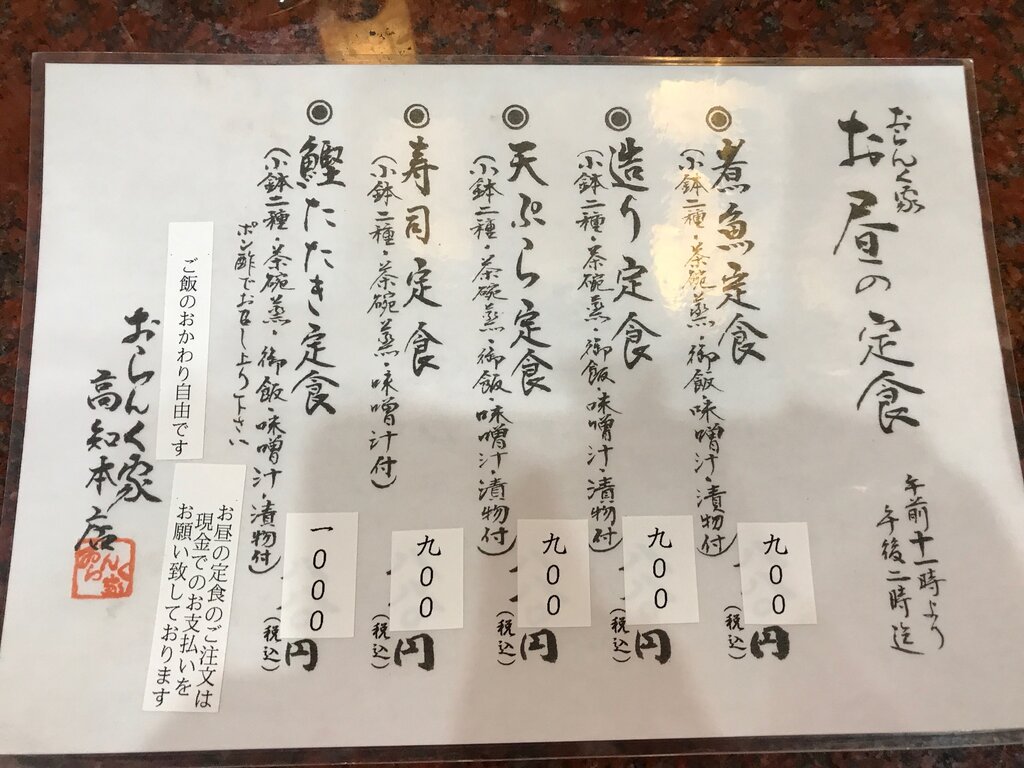 おらんく家
お昼の定食
午前十一時より
午後二時迄
◉煮魚定食
(小鉢二種・茶碗蒸・御飯・味噌汁・漬物付)
九〇〇円
(税込)
◉造り定食
(小鉢二種・茶碗蒸・御飯・味噌汁・漬物付)
九〇〇円
(税込)
◉天ぷら定食
(小鉢二種・茶碗蒸・御飯・味噌汁・漬物付)
九〇〇円
(税込)
◉寿司定食
(小鉢二種・茶碗蒸・味噌汁付)
九〇〇円
(税込)
◉鰹たたき定食
(小鉢二種・茶碗蒸・御飯・味噌汁・漬物付)
ポン酢でお召し上り下さい
一〇〇〇円
(税込)
ご飯のおかわり自由です
お昼の定食のご注文は
現金でのお支払いを
お願い致しております
おらんく家
高知本店